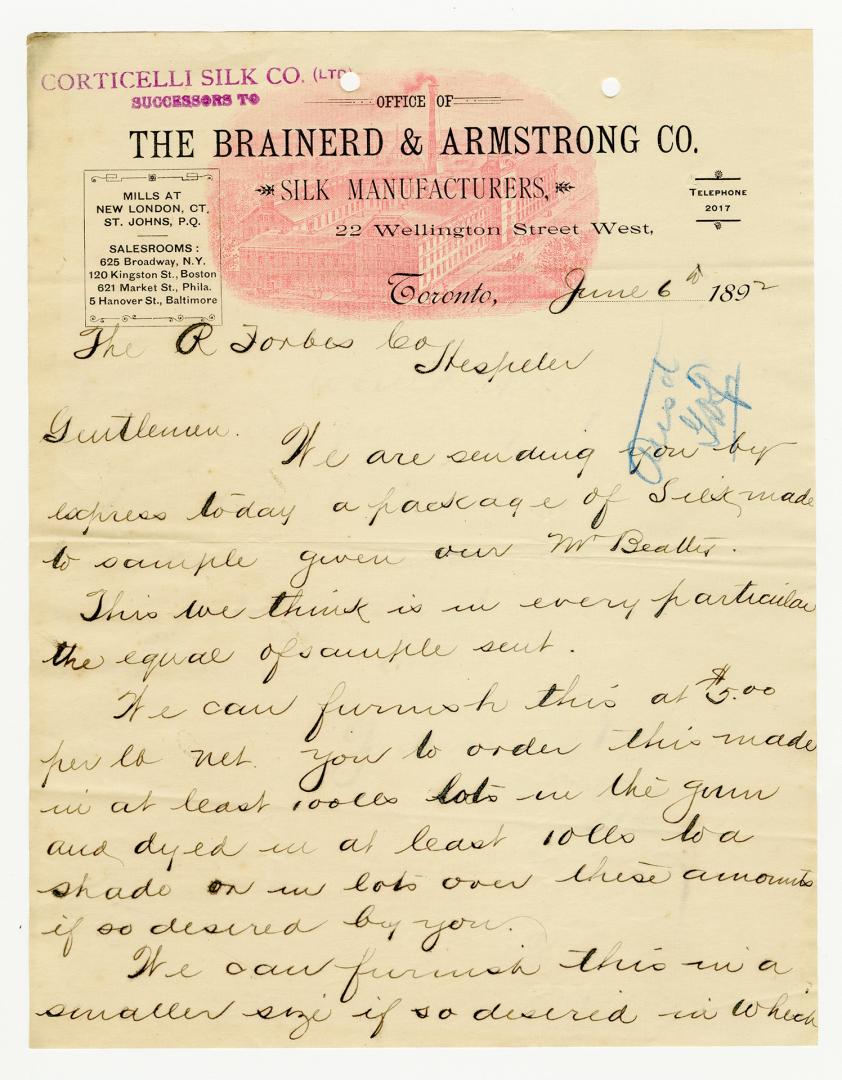 CORTICELLI SILK CO. (LTD)
SUCCESSORS TO
OFFICE OF
THE BRAINERD & ARMSTRONG CO.
SILK MANUFACTURERS,
22 Wellington Street West,
MILLS AT
NEW LONDON, CT.
ST. JOHNS, P.Q.
SALESROOMS:
625 Broadway, N.Y.
120 Kingston St., Boston
621 Market St., Phila.
5 Hanover St., Baltimore
TELEPHONE
2017
Toronto, June 6th 1892
The R Forbes Co
Hespeler
Gentlemen.
We are sending you by
express today a package of Silk made
to sample given our Mr Beattie.
This we think is in every particular
the equal of sample sent.
We can furnish this at $5.00
per lb net. You to order this made
in at least 100lbs lots in the gum
and dyed in at least 10lbs to a
shade or in lots over these amounts
if so desired by you.
We can furnish this in a
smaller size if so desired in which